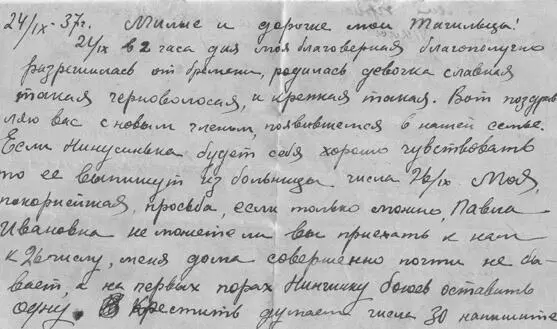 24/IX - 37г. Милые и дорогие мои Тагильцы!
21/IX в 2 часа дня моя благоверная благополучно
разрешилась от бремени, родилась девочка славная
такая черноволосая, и крепкая такая. Вот поздрав
ляю вас с новым членом, появившемся в нашей семье.
Если Нинусинька будет себя хорошо чувствовать
то ее выпишут из больницы числа 26/IX. Моя,
покорнейшая, просьба, если только можно, Павла
Ивановна не можете ли вы приехать к нам
к 26 числу, меня дома совершенно почти не бы-
вает, а на первых порах Ниночку боюсь оставить
одну. Крестить думаем числа 30 напишите